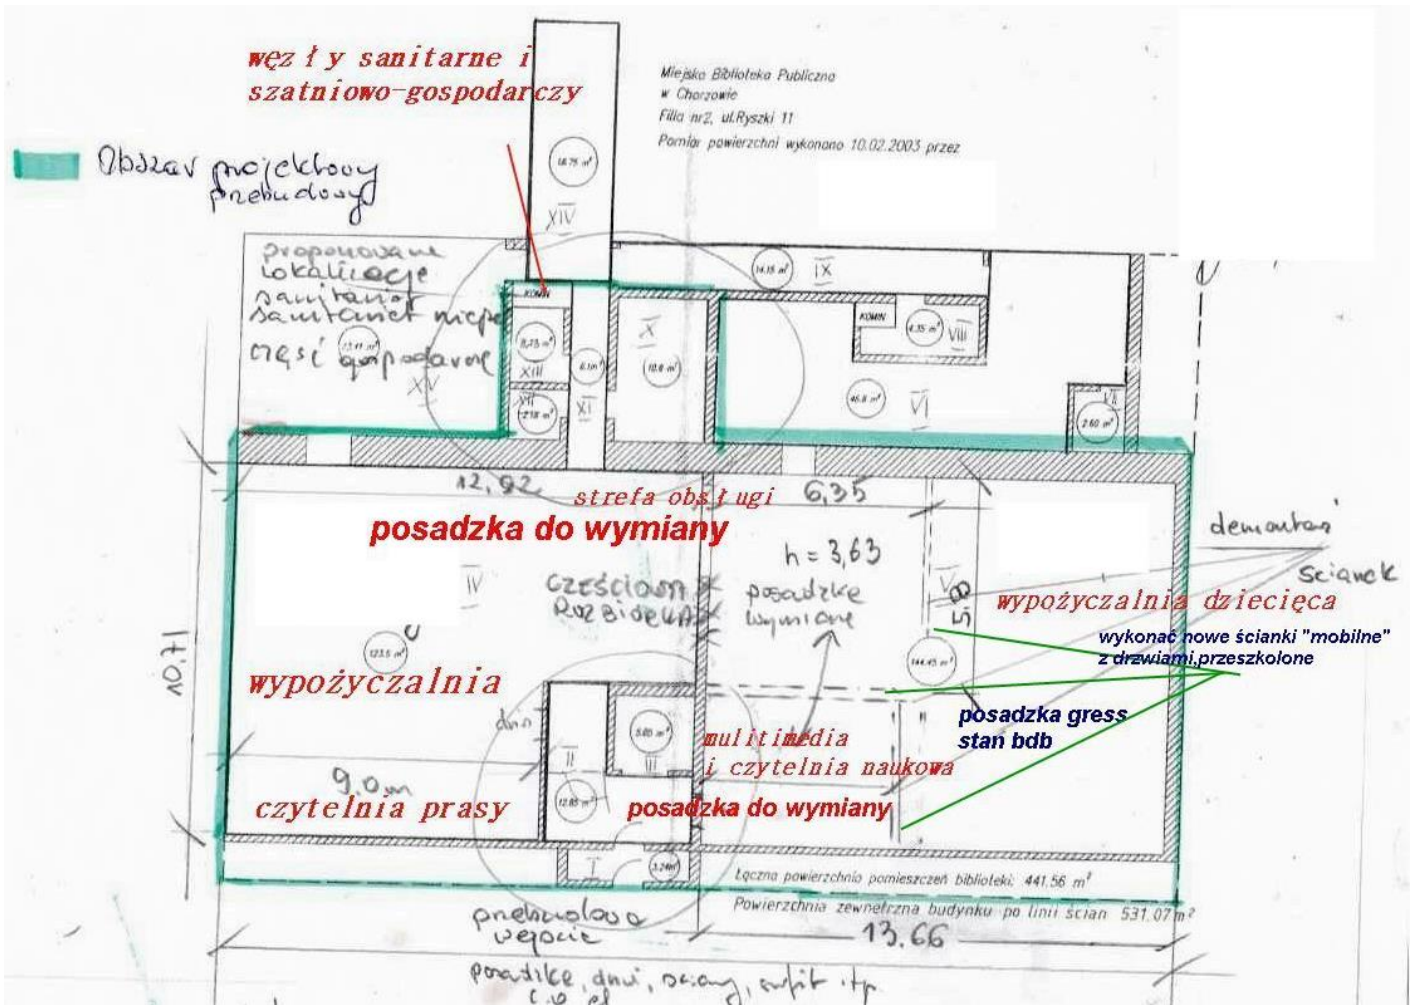 węzły sanitarne i
szatniowo-gospodarczy
Miejska Biblioteka Publiczna
w Chorzowie
Filia nr2, ul.Ryszki 11
Pomiar powierzchni wykonano 10.02.2003 przez
Obszar projektowy
przebudowy
18.75 m²
XIV
proponowane
lokalizacje
sanitariat
sanitariat niepe
część gospodarcze
XV
KOMIN
XIII
XII
XI
6.1m²
X
10.8 m²
14.15 m²
IX
KOMIN
4.35 m²
VIII
45.8 m²
VI
VII
2.60 m²
12,92
strefa obsługi
6,35
posadzka do wymiany
h = 3,63
demontaż
ścianek
IV
częściowa
rozbiórka
posadzkę
wymianę
V
5.8
wypożyczalnia dziecięca
wykonać nowe ścianki "mobilne"
z drzwiami,przeszkolone
10,71
123.5 m²
144.45 m²
wypożyczalnia
posadzka gress
stan bdb
drzwi
5.05 m²
II
III
mulitimedia
i czytelnia naukowa
9.0m
czytelnia prasy
12.85 m²
posadzka do wymiany
I
3.24m²
Łączna powierzchnia pomieszczeń biblioteki: 441.56 m²
Powierzchnia zewnetrzna budynku po linii ścian 531.07 m²
przebudowa
wejście
13.66
posadzkę, drzwi, ściany, sufit itp.